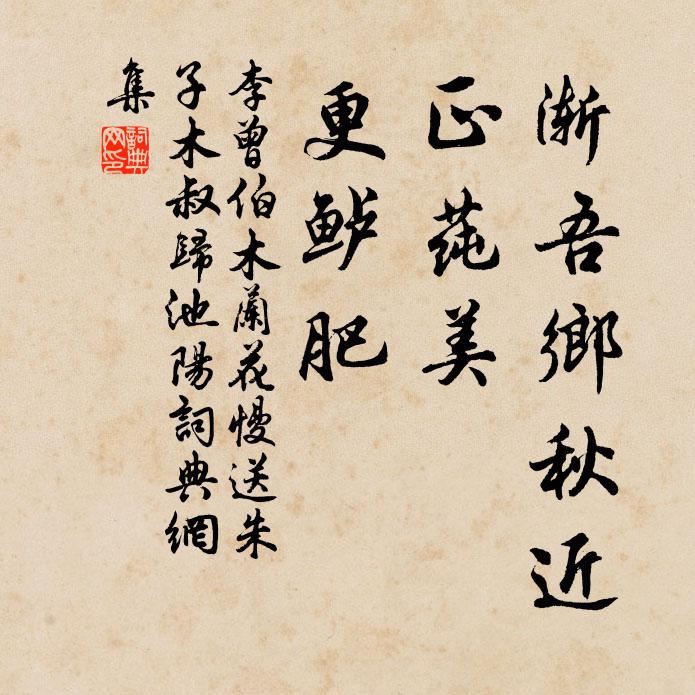 渐吾鄉秋近
正莼美
更鲈肥
李曾伯木蘭花慢送朱
子木叔歸池陽詞典網
集
詞典
网印